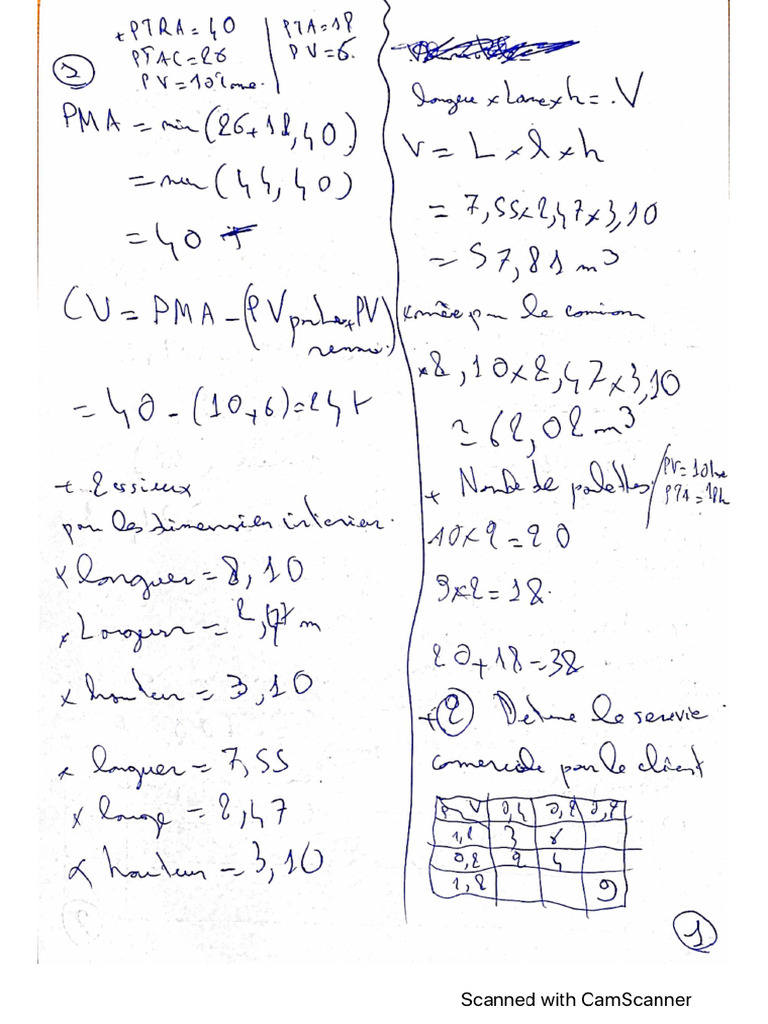 +PTRA = 40
PTAC = 26
PV = 10
PTA = 18
PV = 6.
1
PMA = min (26+18, 40)
= min (44, 40)
= 40 T
CU = PMA - (PV porteur + PV remor.)
= 40 - (10+6) = 24 t
+ 2 essieux
par les dimension interier.
x longuer = 8,10
x Largeur = 2,47 m
x hauteur = 3,10
x longuer = 7,55
x large = 2,47
x hauteur = 3,10
longue x Large x h = V
V = L x l x h
= 7,55 x 2,47 x 3,10
= 57,81 m³
par le camion
x 8,10 x 2,47 x 3,10
= 62,02 m³
+ Nombre de palettes
PV = 10
PTA = 18
10 x 2 = 20
9 x 2 = 18.
20 + 18 = 38
+ 2 Determe le servie
comerciale par le client
V 0,4
1,2 3 6
0,8 2 4
1,2 9
1
Scanned with CamScanner